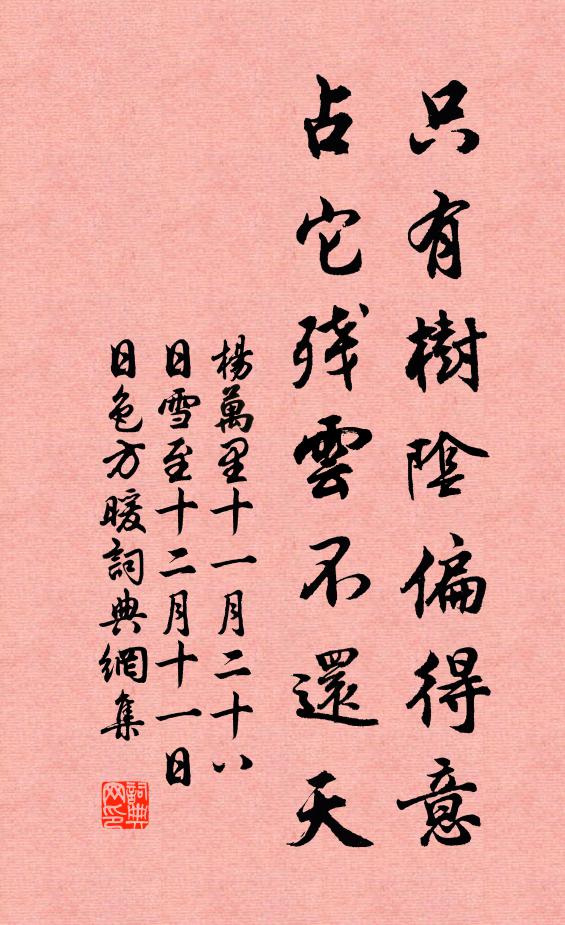 只有樹陰偏得意
占它殘雲不還天
楊萬里十一月二十八
日雪至十二月十一日
日色方暖詞典網集
詞典
网印